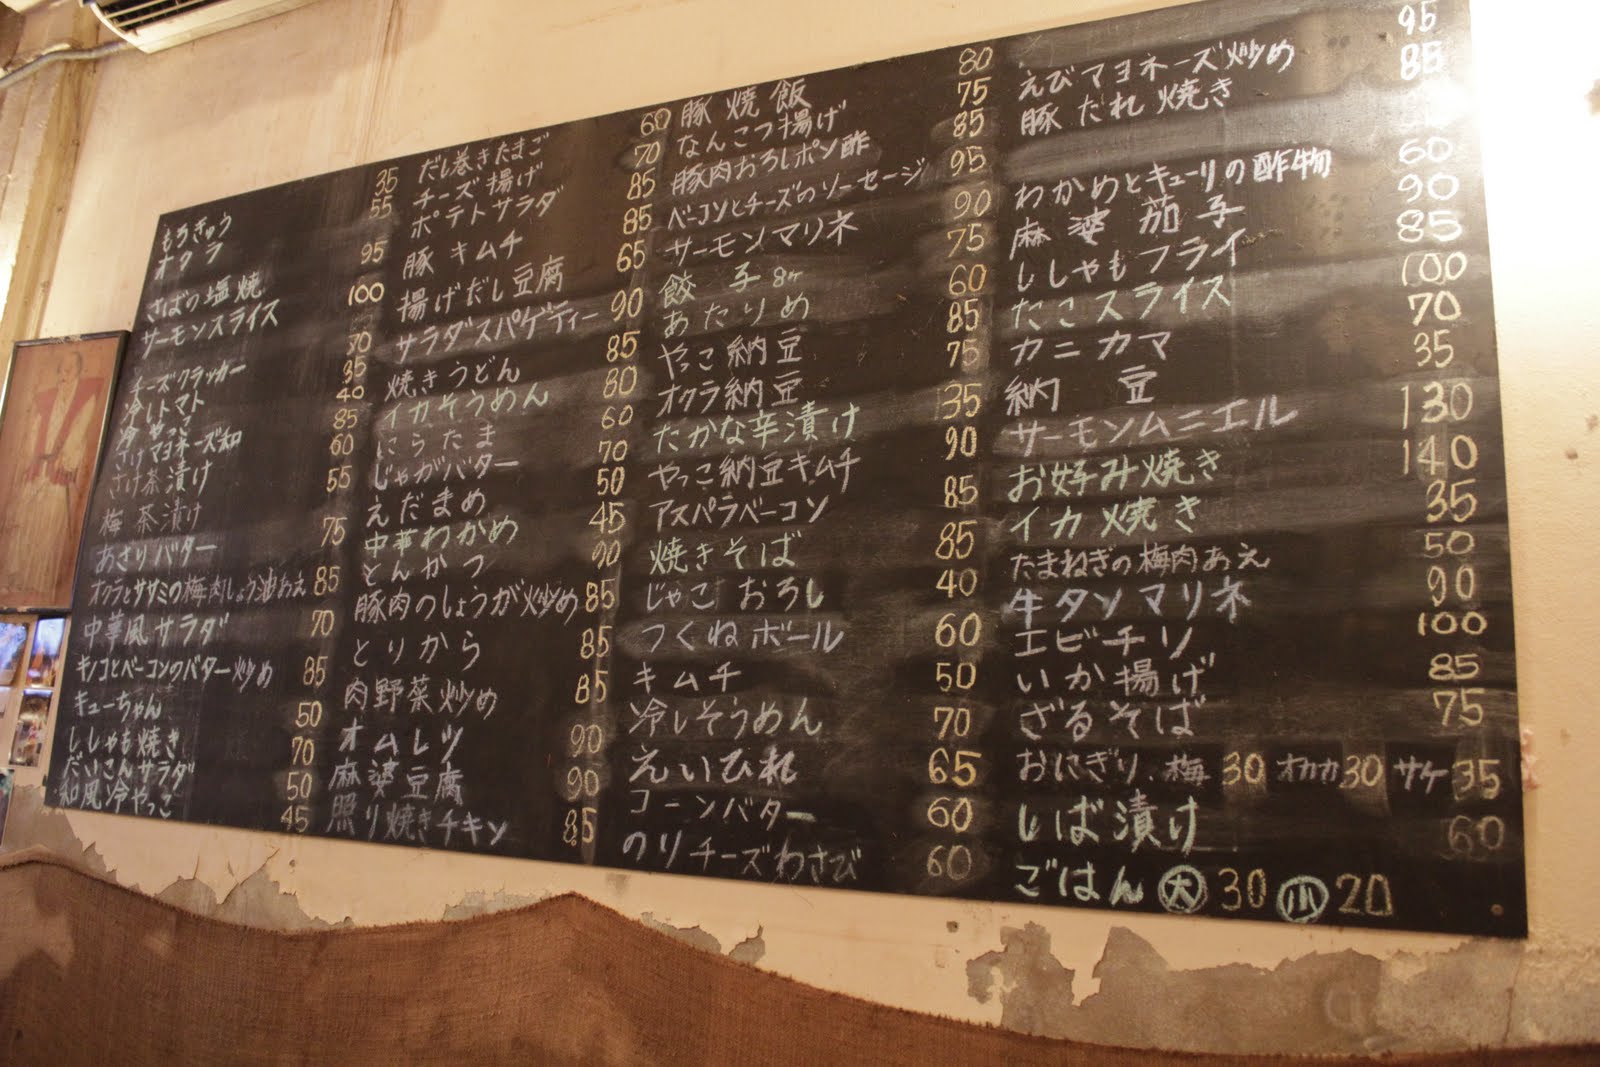 もろきゅう 35
オクラ 55
さばの塩焼 95
サーモンスライス 100
チーズクラッカー 70
冷しトマト 35
冷やっこ 40
さけマヨネーズ和 85
さけ茶漬け 60
梅茶漬け 55
あさりバター 75
オクラとササミの梅肉しょう油あえ 85
中華風サラダ 70
キノコとベーコンのバター炒め 85
キューちゃん 50
ししゃも焼き 70
だいこんサラダ 50
和風冷やっこ 45
だし巻きたまご 60
チーズ揚げ 70
ポテトサラダ 85
豚キムチ 85
揚げだし豆腐 65
サラダスパゲティー 90
焼きうどん 85
イカそうめん 80
にらたま 60
じゃがバター 70
えだまめ 50
中華わかめ 45
とんかつ 90
豚肉のしょうが炒め 85
とりから 85
肉野菜炒め 85
オムレツ 90
麻婆豆腐 90
照り焼きチキン 85
豚焼飯 80
なんこつ揚げ 75
豚肉おろしポン酢 85
ベーコンとチーズのソーセージ 95
サーモンマリネ 90
餃子8ヶ 75
あたりめ 60
やっこ納豆 85
オクラ納豆 75
たかな辛漬け 35
やっこ納豆キムチ 90
アスパラベーコン 85
焼きそば 85
じゃこおろし 40
つくねボール 60
キムチ 50
冷しそうめん 70
えいひれ 65
コーンバター 60
のりチーズわさび 60
えびマヨネーズ炒め 95
豚だれ焼き 85
わかめとキューリの酢物 60
麻婆茄子 90
ししゃもフライ 85
たこスライス 100
カニカマ 70
納豆 35
サーモンムニエル 130
お好み焼き 140
イカ焼き 35
たまねぎの梅肉あえ 50
牛タンマリネ 90
エビチリ 100
いか揚げ 85
ざるそば 75
おにぎり.梅 30 オカカ 30 サケ 35
しば漬け 60
ごはん 大 30 小 20